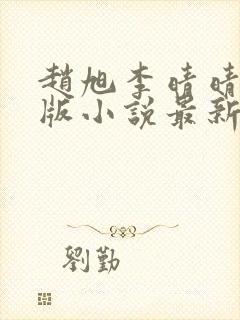 趙旭李晴晴
版小說最新
劉勤